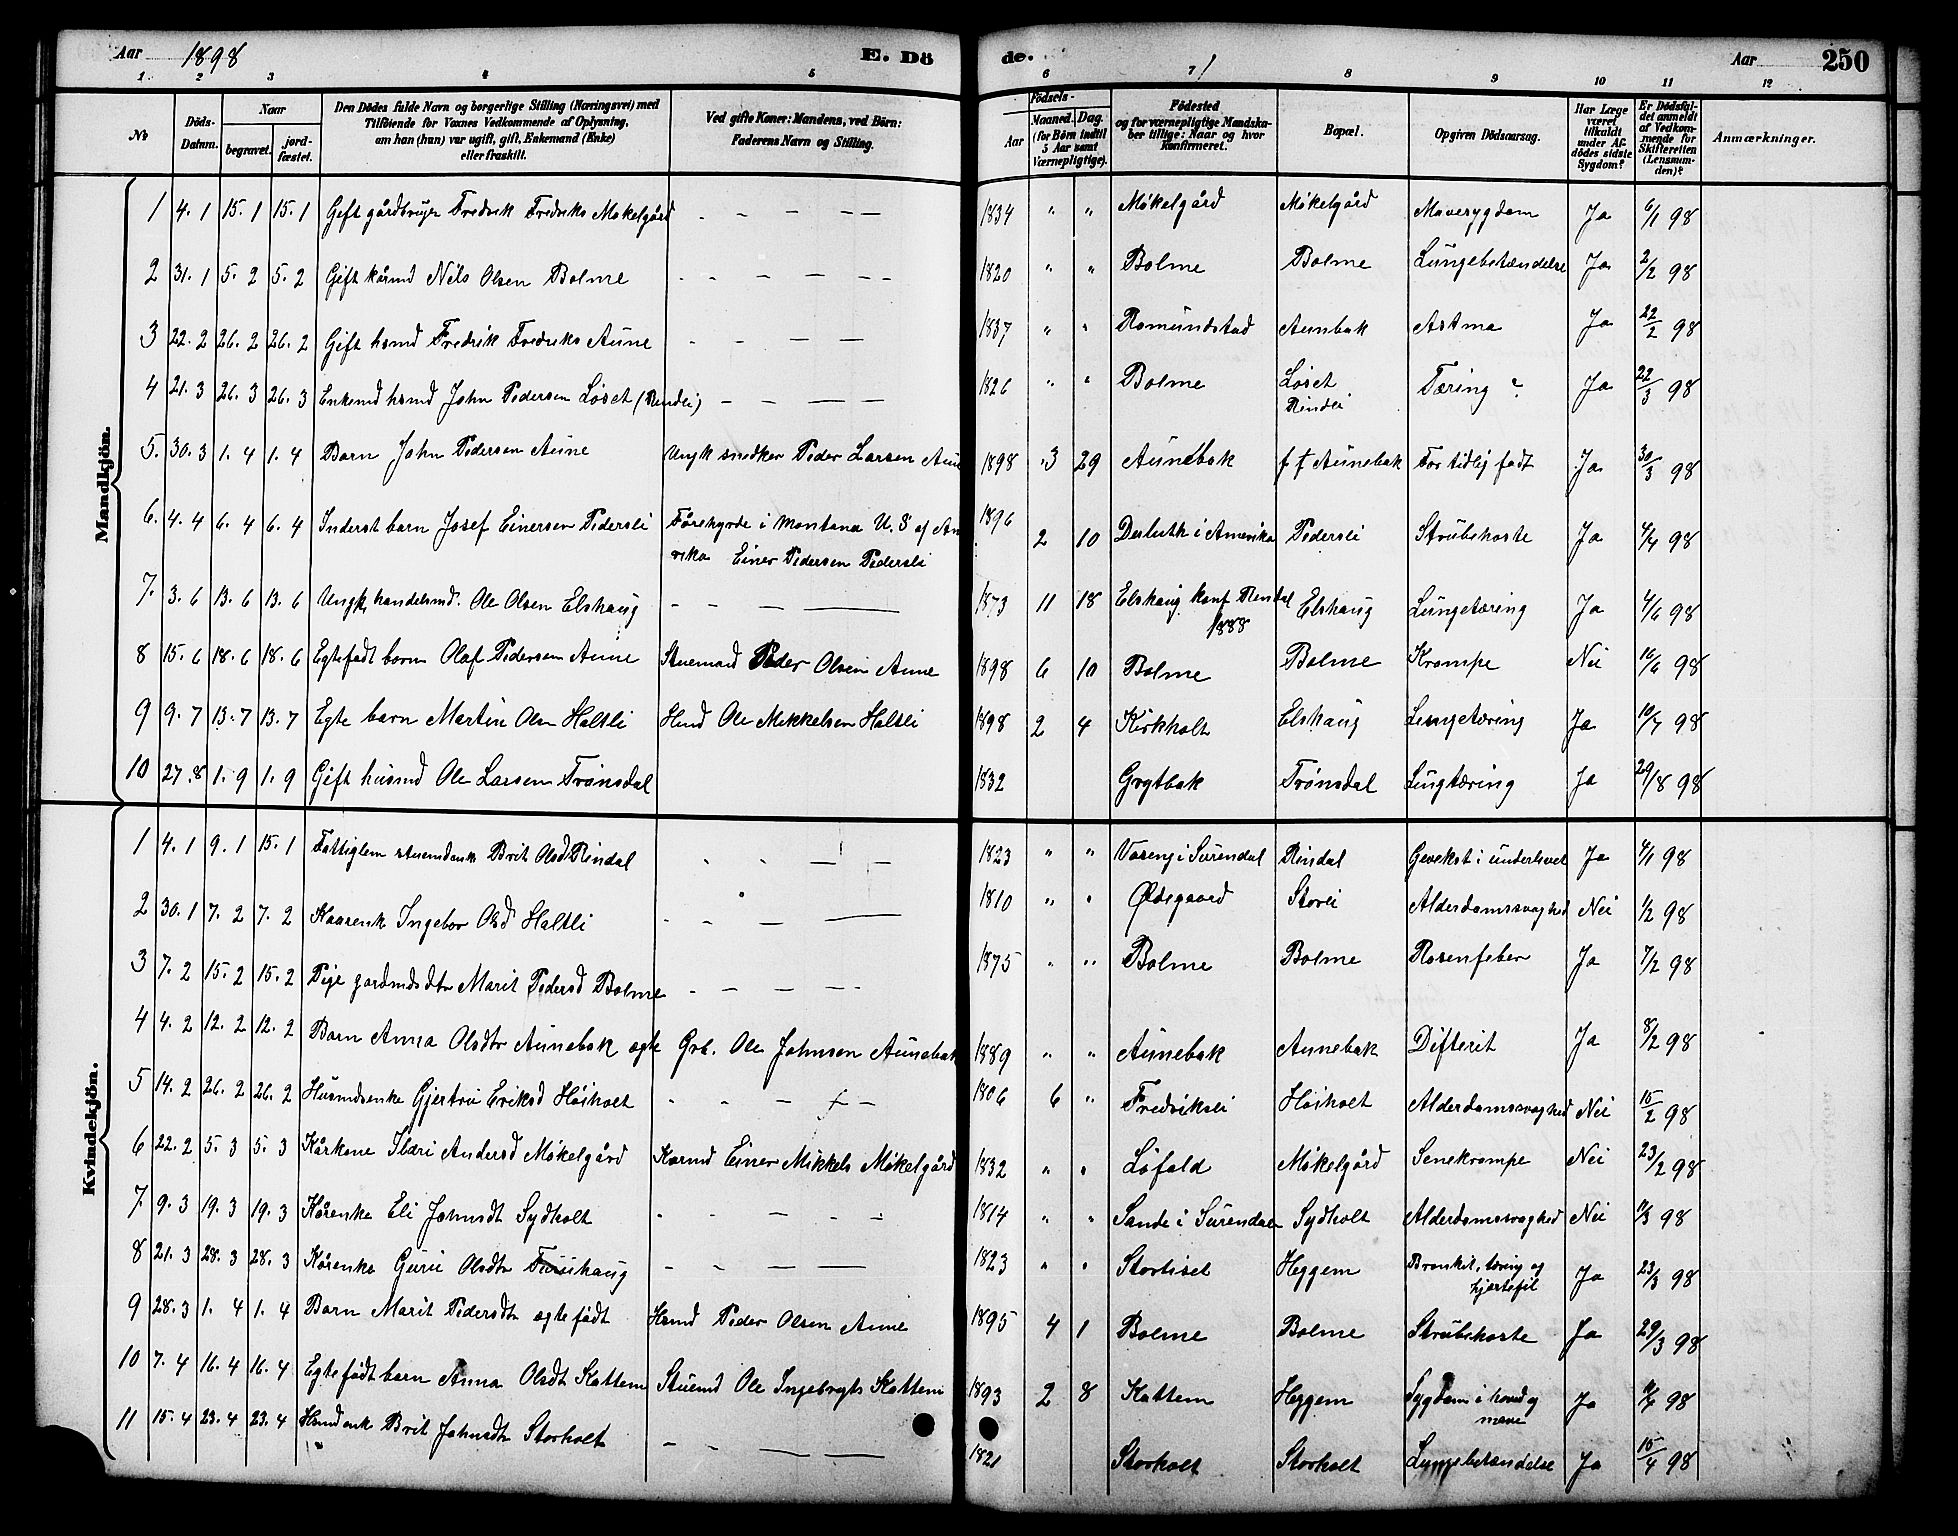 Aar 1898 E. Dö de. Aar 250
1 2 3 4 5 6 7 8 9 10 11 12
№ Döds-Datum. Naar begravet. jordfæstet. Den Dödes fulde Navn og borgerlige Stilling (Næringsvei) med Tilföiende for Voxnes Vedkommende af Oplysning, om han (hun) var ugift, gift, Enkemand (Enke) eller fraskilt. Ved gifte Koner: Mandens, ved Börn: Faderens Navn og Stilling. Födsels- Aar Maaned. Dag. (for Börn indtil 5 Aar samt Værnepligtige). Födested og for værnepligtige Mandskaber tillige: Naar og hvor Konfirmeret. Bopæl. Opgiven Dödsaarsag. Har Læge været tilkaldt under Afdödes sidste Sygdom? Er Dödsfaldet anmeldt af Vedkommende for Skifteretten (Lensmanden)? Anmærkninger.
Mandkjön.
1 4. 1 15. 1 15. 1 Gift gårdbruger Fredrik Fredriks Møkelgård - - - - - 1834 " " Møkelgård Møkelgård Mavesygdom Ja 6/1 98
2 31. 1 5. 2 5. 2 Gift kårmd Nils Olsen Bolme - - - - - - 1820 " " Bolme Bolme Lungebetændelse Ja 2/2 98
3 22. 2 26. 2 26. 2 Gift hsmd Fredrik Fredriks Aune - - - - 1837 " " Romundstad Aunbak Astma Ja 22/2 98
4 21. 3 26. 3 26. 3 Enkemd hsmd John Pedersen Løset (Rindli) - - - - 1826 " " Bolme Løset Tæring ? Ja 22/3 98
Rindli
5. 30. 3 1. 4 1. 4 Barn John Pedersen Aune Ungk snedker Peder Larsen Aune 1898 3 29 Aunebak f f Aunebak For tidlig født Ja 30/3 98
6. 4. 4 6. 4 6. 4 Inderst barn Josef Einersen Pedersli Fårehyrde i Montana U. S af Ame 1896 2 10 Duluth i Amerika Pedersli Strubehoste Ja 4/4 98
rika Einer Pedersen Pedersli
7. 3. 6 13. 6 13. 6 Ungk. handelsmd. Ole Olsen Elshaug - - - - 1873 11 18 Elshaug konf Rindal Elshaug Lungetæring Ja 4/6 98
1888
8 15. 6 18. 6 18. 6 Egtefødt barn Olaf Pedersen Aune Stuemand Peder Olsen Aune 1898 6 10 Bolme Bolme Krampe Nei 16/6 98
9 9. 7 13. 7 13. 7 Egte barn Martin Olsn Haltli Hsmd Ole Mikkelsen Haltli 1898 2 4 Kirkholt Elshaug Lungetæring Ja 10/7 98
10 27. 8 1. 9 1. 9 Gift husmd Ole Larsen Trønsdal 1832 Grytbak Trønsdal Lungtæring Ja 29/8 98
Kvindekjön.
1 4. 1 9. 1 15. 1 Fattiglem stuemdenk Brit Olsd Rindal 1823 " " Voreng i Surendal Rindal Gevekst i underlivet Ja 4/1 98
2 30. 1 7. 2 7. 2 Kaarenk Ingebor Olsd Haltli - - - - 1810 " " Ødegaard Storli Alderdomssvaghed Nei 1/2 98
3 7. 2 15. 2 15. 2 Pige gardmdsdtr Marit Pedersd Bolme - - - - - 1875 " " Bolme Bolme Rosenfeber Ja 7/2 98
4 4. 2 12. 2 12. 2 Barn Anna Olsdtr Aunebak egte Grb. Ole Johnsen Aunebak 1889 " " Aunebak Aunebak Difterit Ja 8/2 98
5 14. 2 26. 2 26. 2 Husmdsenke Gjertru Eriksd Høiholt - - - - 1806 6 " Fredriksli Høiholt Alderdomssvaghed Nei 15/2 98
6 22. 2 5. 3 5. 3 Kårkone Ildri Andersd Møkelgård Karmd Einer Mikkels Møkelgård 1832 " " Løfald Møkelgård Senekrampe Nei 23/2 98
7. 9. 3 19. 3 19. 3 Kårenke Eli Johnsdt Sydholt - - - - - 1814 " " Sande i Surendal Sydholt Alderdomssvaghed Nei 98
8 21. 3 28. 3 28. 3 Kårenke Guru Olsdtr - - - - 1823 " " Stortisel Heggem Bronkit, tæring og Ja 23/3 98
hjertefeil
9 28. 3 1. 4 1. 4 Barn Marit Pedersdtr egtefødt Hsmd Peder Olsen Aune 1895 4 1 Bolme Bolme Strubehoste Ja 29/3 98
10 7. 4 16. 4 16. 4 Egtefødt barn Anna Olsdt Kattem Stuemd Ole Ingebrigts Kattem 1893 2 8 Kattem Heggem Sygdom i hoved og Ja 98
mave
11 15. 4 23. 4 23. 4 Hsmdenk Brit Johnsdtr Storholt - - - - 1821 Storholt Storholt Lungebetændelse Ja 15/4 98